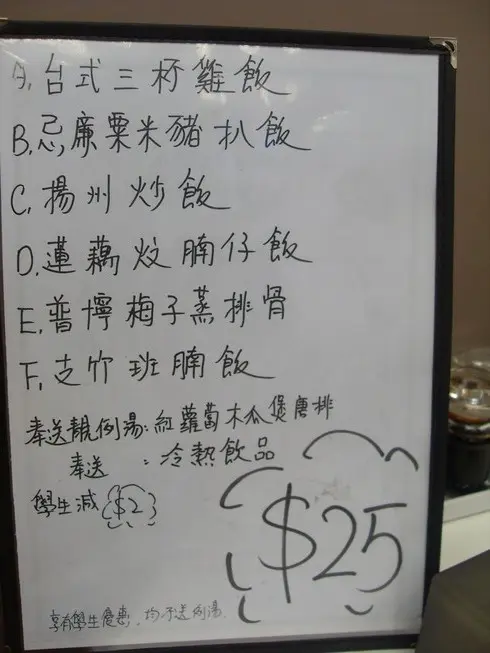 A. 台式三杯雞飯
B. 忌廉粟米豬扒飯
C. 揚州炒飯
D. 蓮藕炆腩仔飯
E. 普檸梅子蒸排骨
F. 支竹班腩飯
奉送靚例湯:紅蘿蔔木瓜煲唐排
奉送 :冷熱飲品
學生減 $2
$25
享有學生優惠,均不送例湯